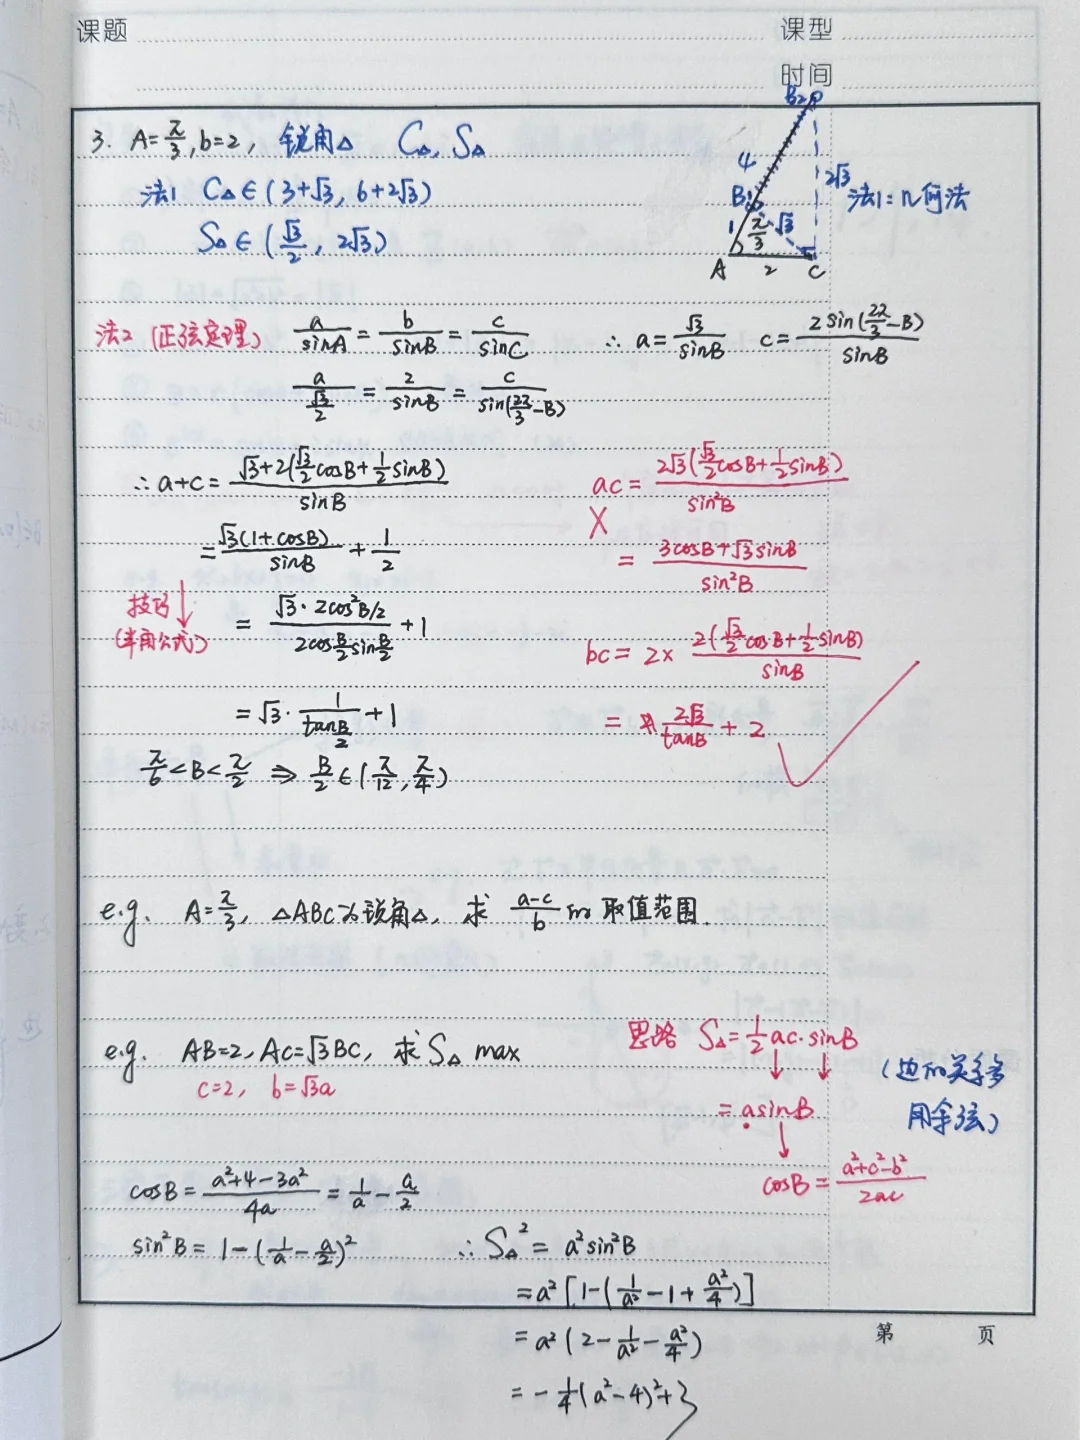 课题
课型
时间
3. A=π/3, b=2, 锐角△ C△, S△
法1 C△∈(3+√3, 6+2√3)
S△∈(√3/2, 2√3)
B₂
4
2√3
B₁
1
π/3
√3
A
2
C
法1:几何法
法2 (正弦定理) a/sinA = b/sinB = c/sinC ∴ a=√3/sinB c=2sin(2π/3-B)/sinB
a/(√3/2) = 2/sinB = c/sin(2π/3-B)
∴ a+c = (√3+2(√3/2cosB+1/2sinB))/sinB
= √3(1+cosB)/sinB + 1/2
技巧
(半角公式)
= √3·2cos²B/2 / (2cosB/2 sinB/2) + 1
= √3 · 1/tanB/2 + 1
π/6<B<π/2 ⇒ B/2∈(π/12, π/4)
ac = 2√3(√3/2cosB+1/2sinB)/sin²B
X
= (3cosB+√3sinB)/sin²B
bc = 2× 2(√3/2cosB+1/2sinB)/sinB
= 2√3/tanB + 2
e.g. A=π/3, △ABC为锐角△, 求 (a-c)/b 的取值范围.
e.g. AB=2, AC=√3BC, 求S△ max
c=2, b=√3a
思路 S△=1/2ac·sinB
= asinB
cosB = (a²+c²-b²)/2ac
(边的关系多
用余弦)
cosB = (a²+4-3a²)/4a = 1/a - a/2
sin²B = 1-(1/a - a/2)²
∴ S△² = a²sin²B
= a²[1-(1/a²-1+a²/4)]
= a²(2-1/a²-a²/4)
= -1/4(a²-4)²+3
第 页